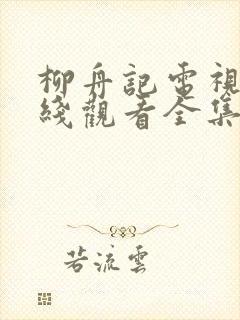 柳舟記電視
綫觀看全集
若流雲